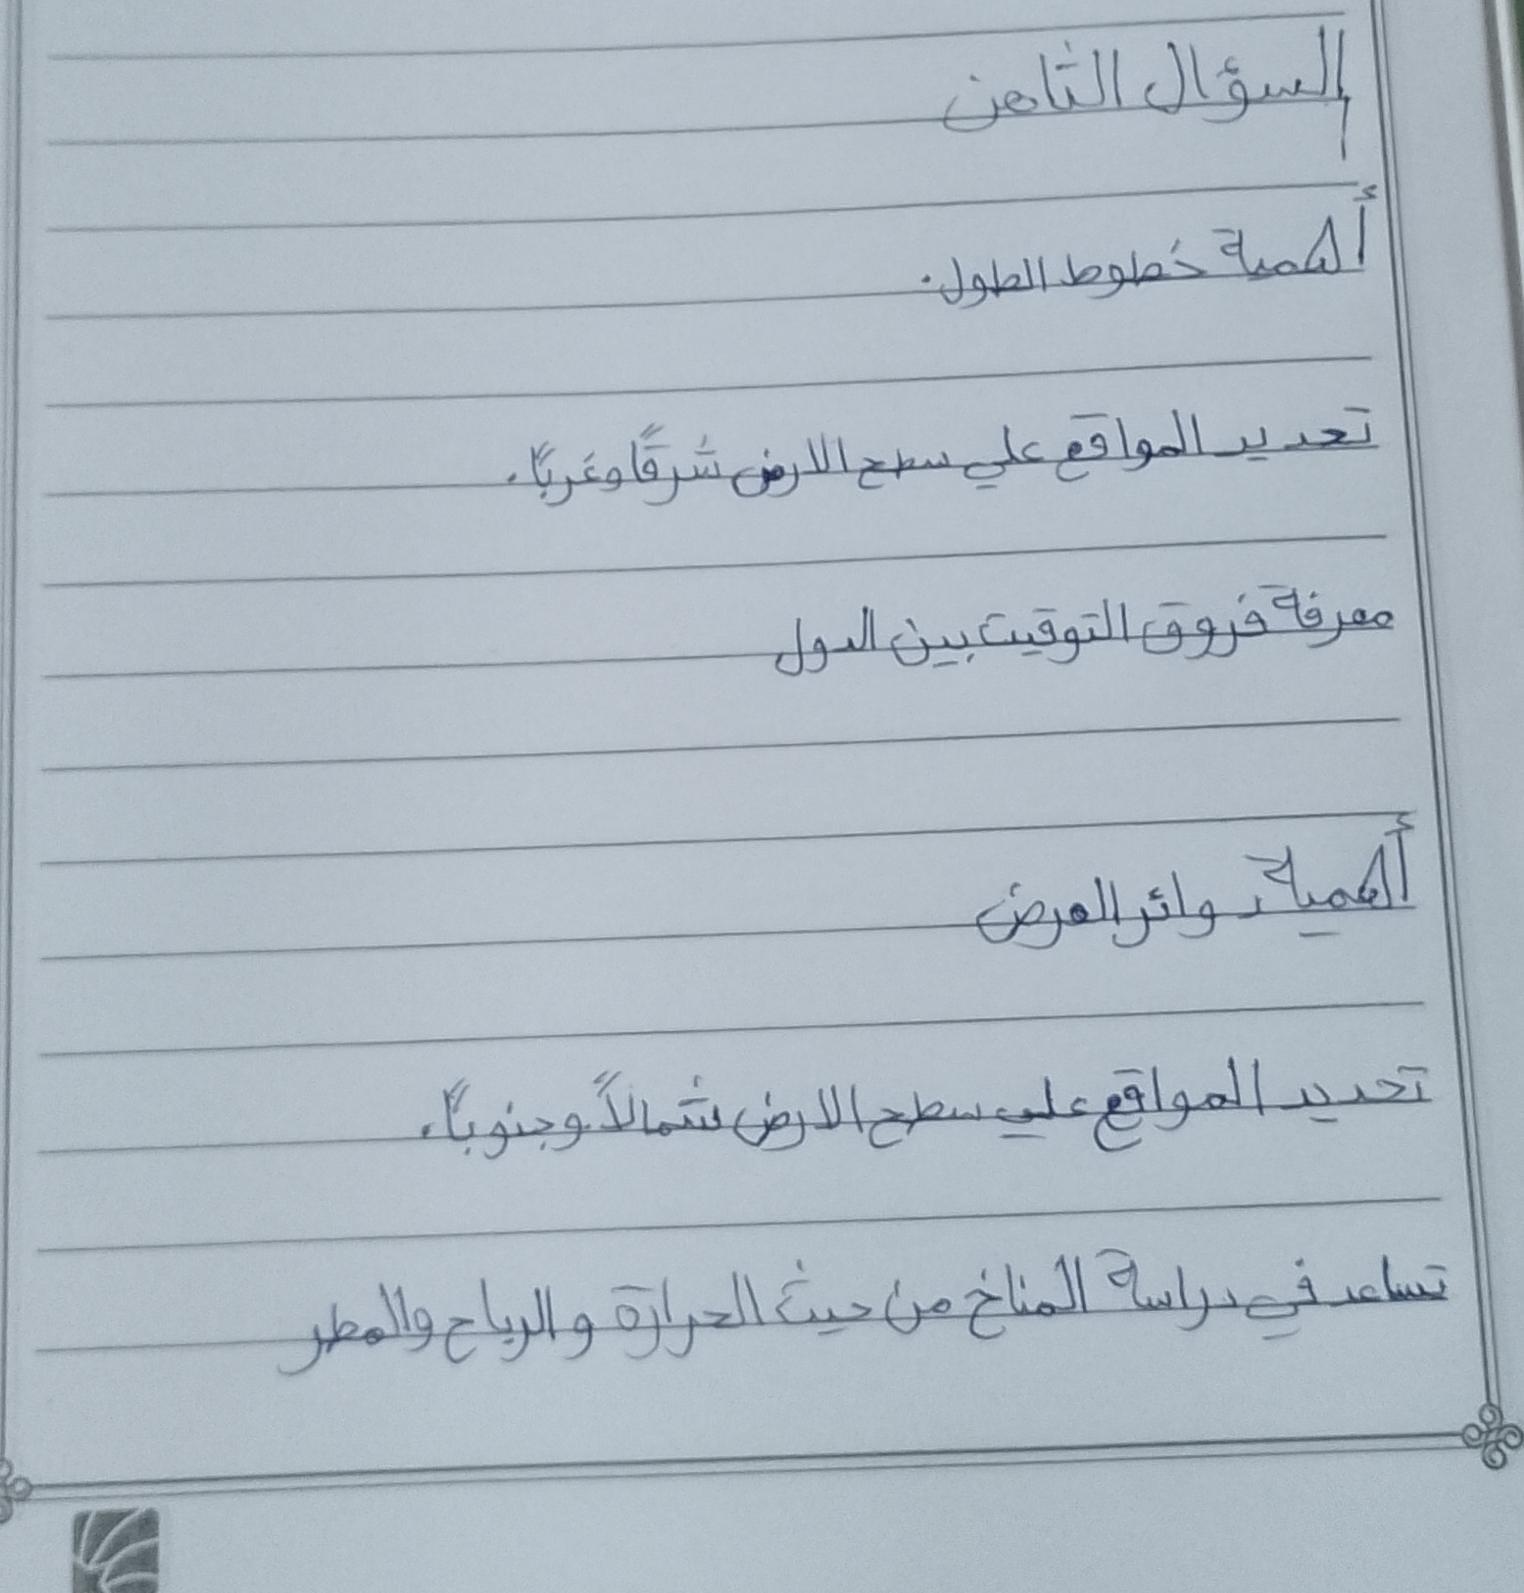 السؤال الثامن
أهمية خطوط الطول.
تحديد المواقع علي سطح الارض شرقًا وغربًا.
معرفة فروق التوقيت بين الدول
أهمية دوائر العرض
تحديد المواقع علي سطح الارض شمالاً وجنوباً.
تساعد في دراسة المناخ من حيث الحرارة والرياح والمطر